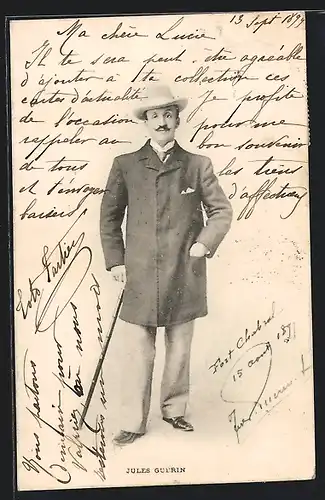 13 Sept 1899
Ma chère Lucie
Il te sera peut-être agréable
d'ajouter à ta collection ces
cartes d'actualité. Je profite
de l'occasion pour me
rappeler au bon souvenir
de tous les tiens
et t'envoyer d'affectueux
baisers
Nous partons
demain pour
nous
Fort Chabrol
15 août 1899
JULES GUÉRIN